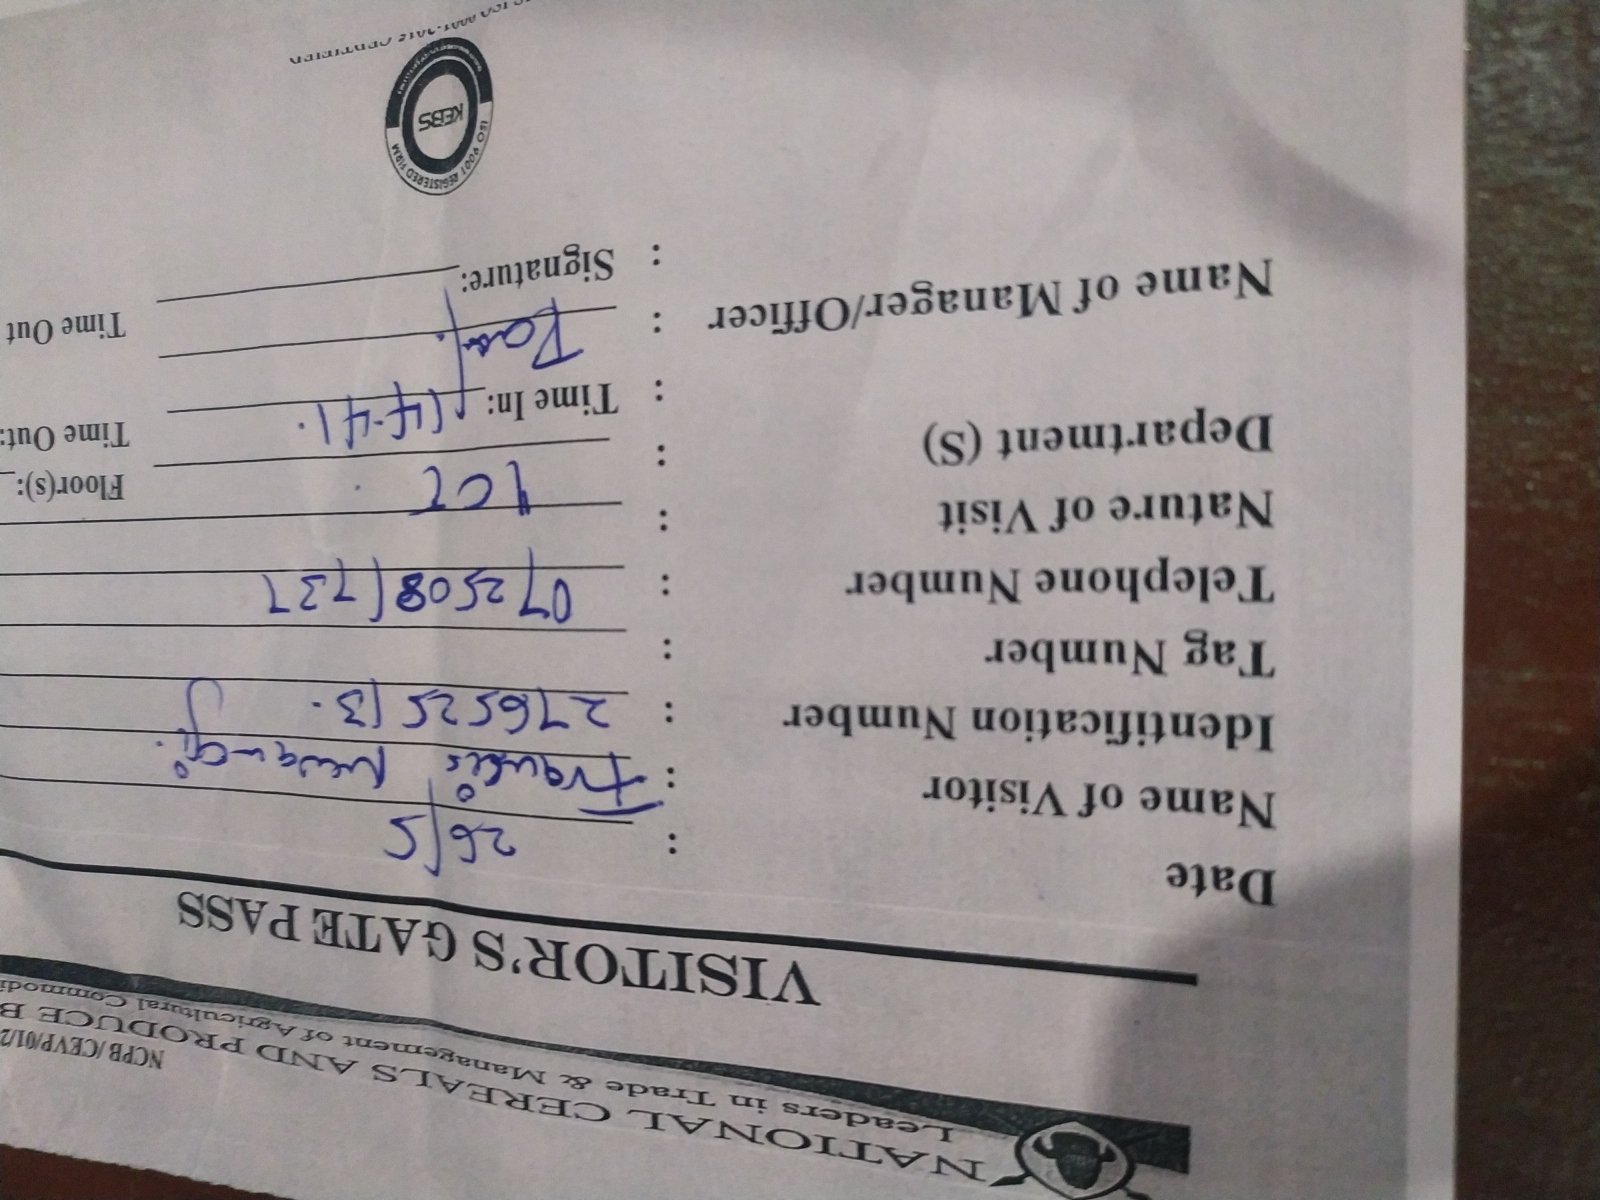 NCPB/CEVP/01/2
NATIONAL CEREALS AND PRODUCE B
Leaders in Trade & Management of Agricultural Commodi
VISITOR'S GATE PASS
Date : 26/5
Name of Visitor : Francis
Identification Number : 27652513.
Tag Number :
Telephone Number : 0725081737
Nature of Visit :
Department (S) : ICT. Floor(s):
: Time In: 14-41. Time Out:
Name of Manager/Officer : Time Out
: Signature:
ISO 9001 REGISTERED FIRM
KEBS